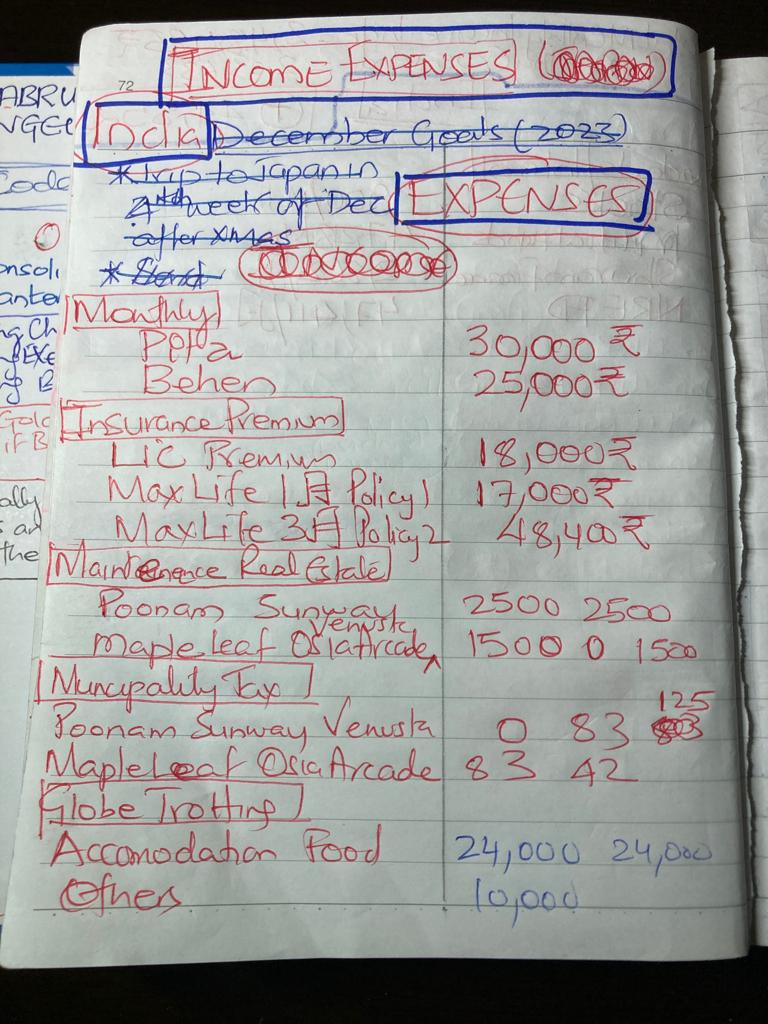 72
INCOME EXPENSES
India December Goals (2023)
* Trip to Japan in
4th week of Dec
after XMAS
EXPENSES
* Send
Monthly
Papa 30,000 ₹
Behen 25,000 ₹
Insurance Premium
LIC Premium 18,000 ₹
Max Life 1月 Policy 1 17,000 ₹
Max Life 3月 Policy 2 48,400 ₹
Maintenence Real Estate
Poonam Sunway Venusta 2500 2500
Maple Leaf Osia Arcade 1500 0 1500
Muncipality Tax
125
Poonam Sunway Venusta 0 83
Maple Leaf Osia Arcade 83 42
Globe Trotting
Accomodation Food 24,000 24,000
Others 10,000
ABRU
NGE
Code
onsoli
ante
ng Ch
Gold
if B
ally
the